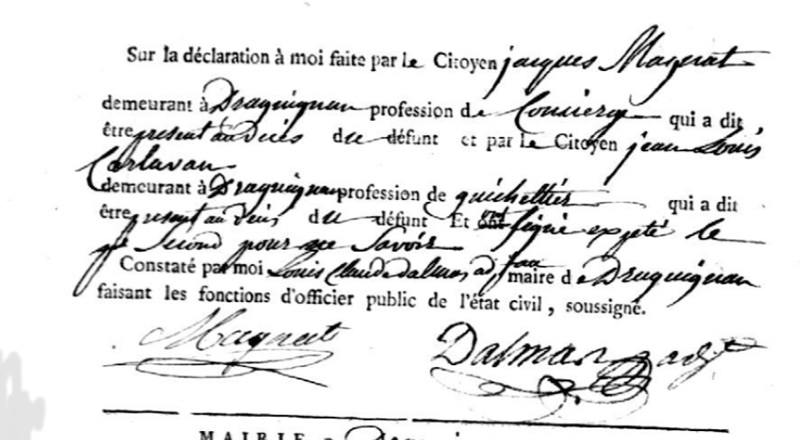 Sur la déclaration à moi faite par le Citoyen jacques Magnat
demeurant à Draguignan profession de Concierge qui a dit
être present au décès du défunt et par le Citoyen jean Louis
Carlavan
demeurant à Draguignan profession de guichettier qui a dit
être present au décès du défunt Et ont signé expété le
second pour ne savoir
Constaté par moi Louis Claude dalmas adj maire de Draguignan
faisant les fonctions d'officier public de l'état civil, soussigné.
Magnat Dalmas adjt
MAIRIE